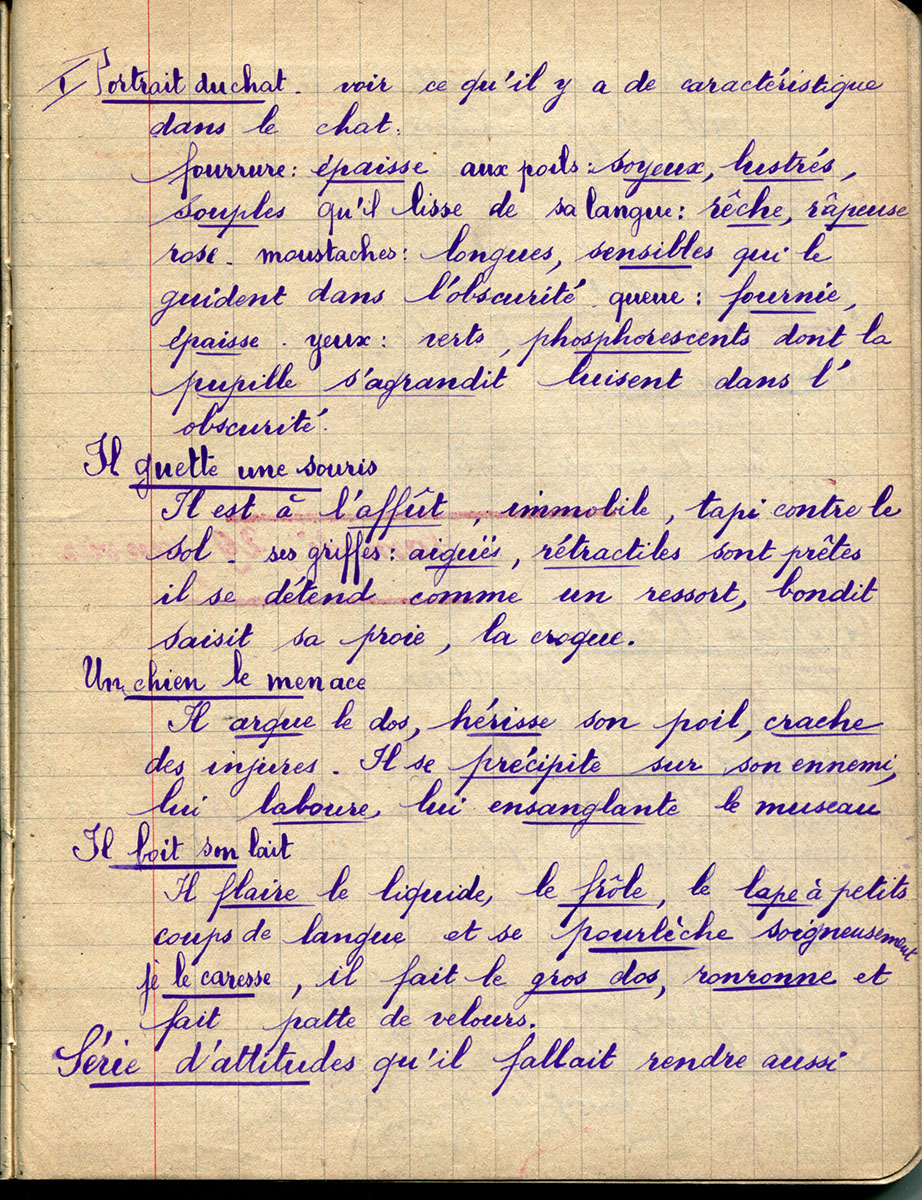 I Portrait du chat - voir ce qu'il y a de caractéristique
dans le chat.
fourrure : épaisse aux poils : soyeux, lustrés,
souples qu'il lisse de sa langue : rêche, râpeuse
rose - moustaches : longues, sensibles qui le
guident dans l'obscurité. queue : fournie,
épaisse - yeux : verts, phosphorescents dont la
pupille s'agrandit luisent dans l'
obscurité.
Il guette une souris
Il est à l'affût, immobile, tapi contre le
sol - ses griffes : aiguës, rétractiles sont prêtes
il se détend comme un ressort, bondit
saisit sa proie, la croque.
Un chien le menace
Il arque le dos, hérisse son poil, crache
des injures. Il se précipite sur son ennemi,
lui laboure, lui ensanglante le museau
Il boit son lait
Il flaire le liquide, le frôle, le lape à petits
coups de langue et se pourlèche soigneusement
je le caresse, il fait le gros dos, ronronne et
fait patte de velours.
Série d'attitudes qu'il fallait rendre aussi